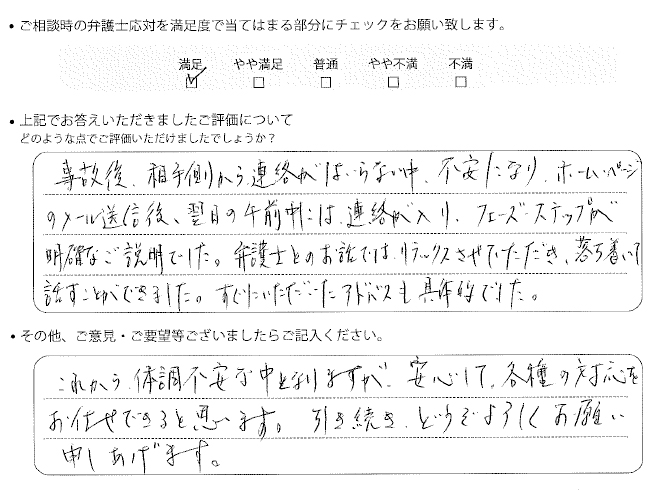 • ご相談時の弁護士応対を満足度で当てはまる部分にチェックをお願い致します。
満足 やや満足 普通 やや不満 不満
• 上記でお答えいただきましたご評価について
どのような点でご評価いただけましたでしょうか？
事故後、相手側から連絡がはいらない中、不安になり、ホームページ
のメール送信後、翌日の午前中には、連絡が入り、フェーズ・ステップが
明確なご説明でした。弁護士とのお話では、リラックスさせていただき、落ち着いて
話すことができました。すぐにいただいたアドバイスも具体的でした。
• その他、ご意見・ご要望等ございましたらご記入ください。
これから、体調不安な中となりますが、安心して、各種の対応を
お任せできると思います。引き続き、どうぞよろしくお願い
申しあげます。